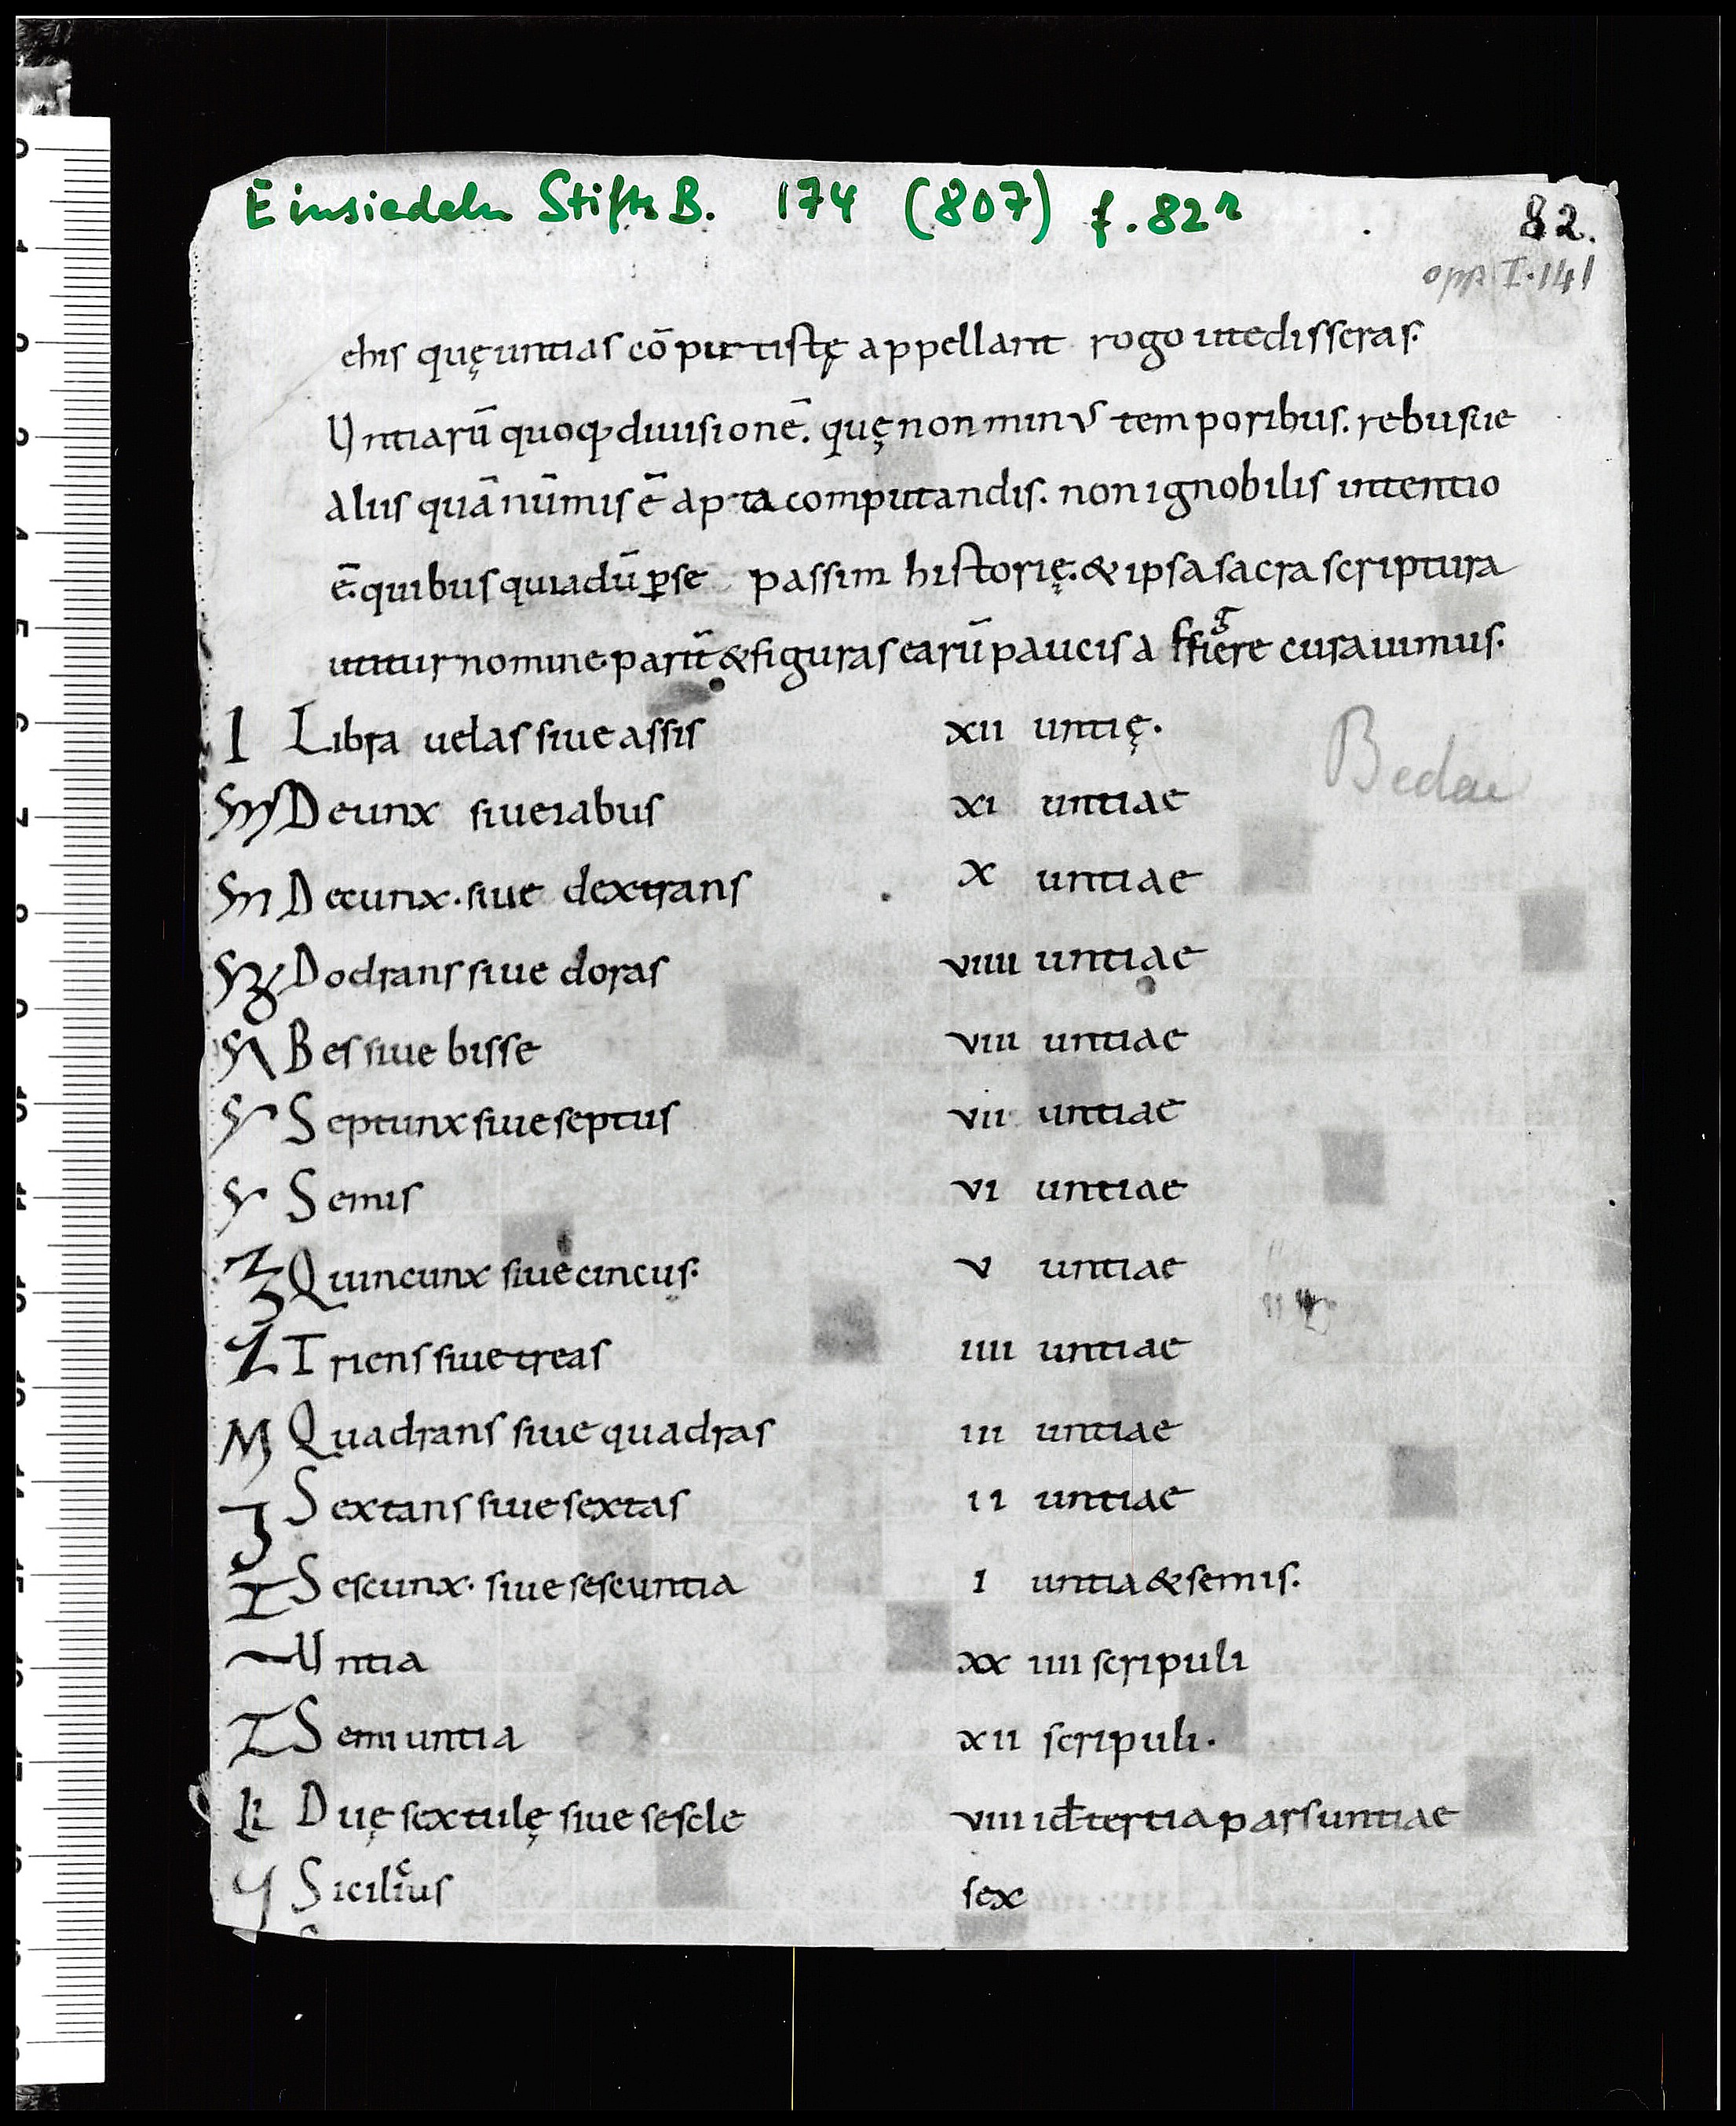 Einsiedeln Stifts B. 174 (807) f. 82r
82.
opp I. 141
chis quę untias cō putistę appellant rogo utedisseras.
Untiarū quoq; diuisionē. quę non minus temporibus. rebusue
aliis quā nūmis ē apta computandis. non ignobilis intentio
ē. quibus quia dū p̱se passim historię. & ipsa sacra scriptura
utitur nomine partiū & figuras earū paucis a curauimus.
Libra uel as siue assis xii untię.
Deunx siue iabus xi untiae
Decunx. siue dextrans x untiae
Dodrans siue doras viiii untiae
Bes siue bisse viii untiae
Septunx siue septus vii untiae
Semis vi untiae
Quincunx siue cincus. v untiae
Triens siue treas iiii untiae
Quadrans siue quadras iii untiae
Sextans siue sextas ii untiae
Sescunx. siue sescuntia i untia & semis.
Untia xx iiii scripuli
Semiuntia xii scripuli.
Duę sextulę siue sescle viii id÷ tertia pars untiae
Sicilicus sex
Bedae